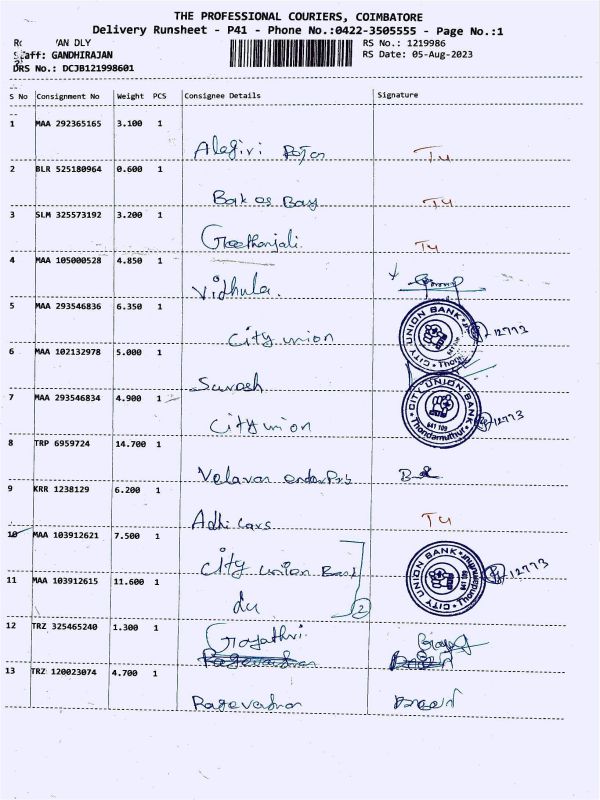 THE PROFESSIONAL COURIERS, COIMBATORE
Delivery Runsheet - P41 - Phone No.:0422-3505555 - Page No.:1
AN DLY
RS No.: 1219986
Staff: GANDHIRAJAN
RS Date: 05-Aug-2023
DRS No.: DCJB121998601
S No Consignment No Weight PCS Consignee Details Signature
1 MAA 292365165 3.100 1
Alagiri
2 BLR 525180964 0.600 1
3 SLM 325573192 3.200 1
Geethanjali
4 MAA 105000528 4.850 1
Vidhula
5 MAA 293546836 6.350 1
City union
CITY UNION BANK
12773
6 MAA 102132978 5.000 1
Suresh
7 MAA 293546834 4.900 1
City union
CITY UNION BANK
Thondamuthur
641 109
12773
8 TRP 6959724 14.700 1
Velavan
9 KRR 1238129 6.200 1
Adhi cars
10 MAA 103912621 7.500 1
City union Bank
CITY UNION BANK
12773
11 MAA 103912615 11.600 1
du
2
12 TRZ 325465240 1.300 1
Gayathri
13 TRZ 120023074 4.700 1